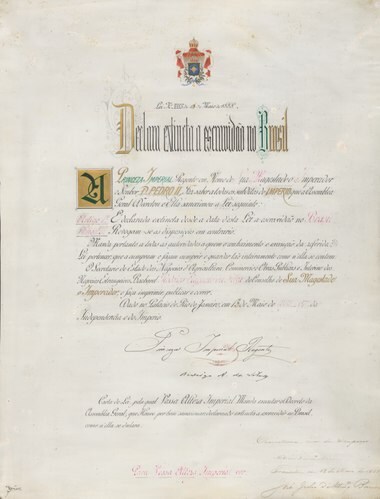 Lei N.º 3353 de 13 de Maio de 1888.
Declara extincta a escravidão no Brasil
A PRINCEZA IMPERIAL Regente em Nome de Sua Magestade o Imperador
o Senhor D. PEDRO II, Faz saber a todos os subditos do IMPERIO que a Assembléa
Geral Decretou e Ella sanccionou a Lei seguinte:
Artigo 1º É declarada extincta desde a data d'esta Lei a escravidão no Brazil.
Artigo 2º Revogam-se as disposições em contrario.
Manda portanto a todas as autoridades a quem o conhecimento e execução da referida
Lei pertencer, que a cumpram e façam cumprir e guardar tão inteiramente como n'ella se contém.
O Secretario de Estado dos Negocios d'Agricultura, Commercio e Obras Publicas e Interino dos
Negocios Estrangeiros, Bacharel Rodrigo Augusto da Silva do Conselho de Sua Magestade
o Imperador, o faça imprimir, publicar e correr.
Dado no Palacio do Rio de Janeiro, em 13 de Maio de
Independencia e do Imperio.
Princeza Imperial Regente
Rodrigo A. da Silva
Carta de Lei, pela qual Vossa Alteza Imperial Manda executar o Decreto da
Assembléa Geral, que Houve por bem sanccionar declarando extincta a escravidão no Brazil
como n'ella se declara.
Para Vossa Alteza Imperial ver